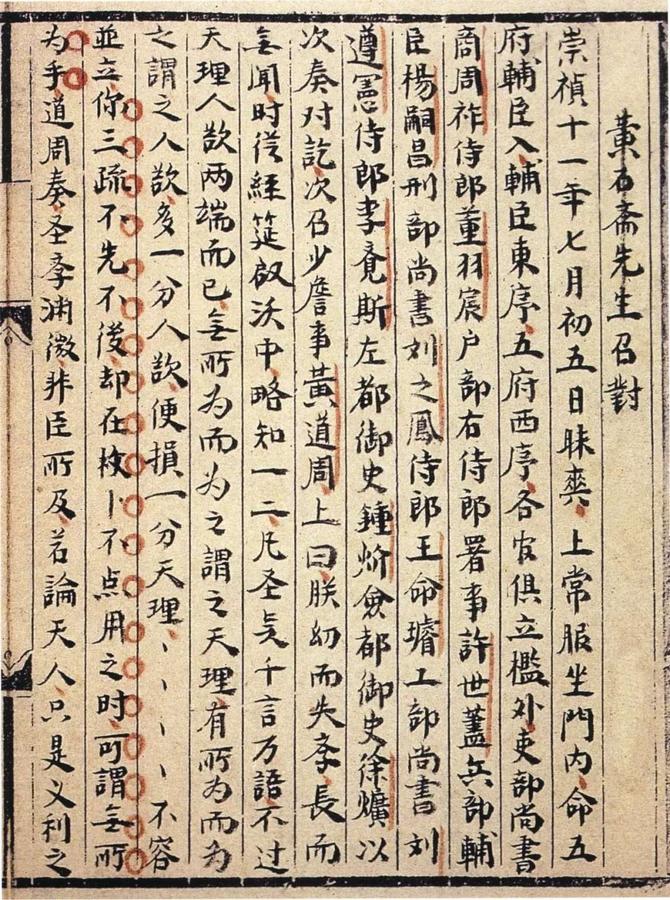 黄石斋先生召對
崇禎十一年七月初五日昧爽上常服坐門内命五
府輔臣入輔臣東序五府西序各官俱立檻外吏部尚書
商周祚侍郎董羽宸户部右侍郎署事許世藎兵部輔
臣楊嗣昌刑部尚書刘之鳳侍郎王命璿工部尚書刘
遵憲侍郎李竟斯左都御史鍾炌僉都御史徐爌以
次奏对訖次召少詹事黄道周上曰朕幼而失李長而
無聞时從經筵啟沃中略知一二凡圣贤千言万語不过
天理人欲两端而已無所为而为之謂之天理有所为而为
之謂之人欲多一分人欲便損一分天理丶丶丶丶不容
並立你三疏不先不後却在枚卜不点用之时可謂無所
为乎道周奏圣李渊微非臣所及若論天人只是义利之